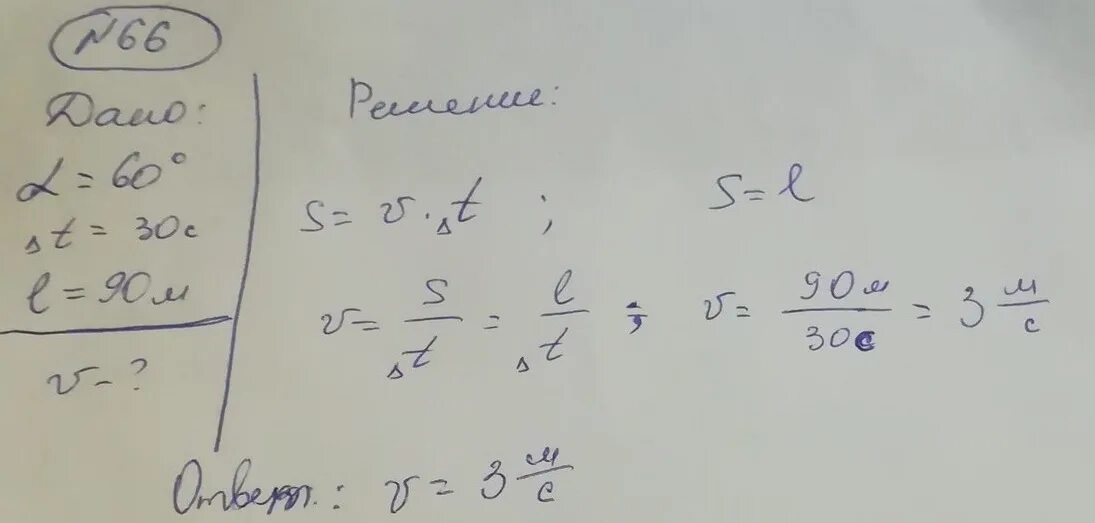 №66
Дано:
α = 60°
Δt = 30с
l = 90м
v - ?
Решение:
S = v · Δt ; S = l
v = S/Δt = l/Δt ; v = 90м/30с = 3 м/с
Ответ.: v = 3 м/с